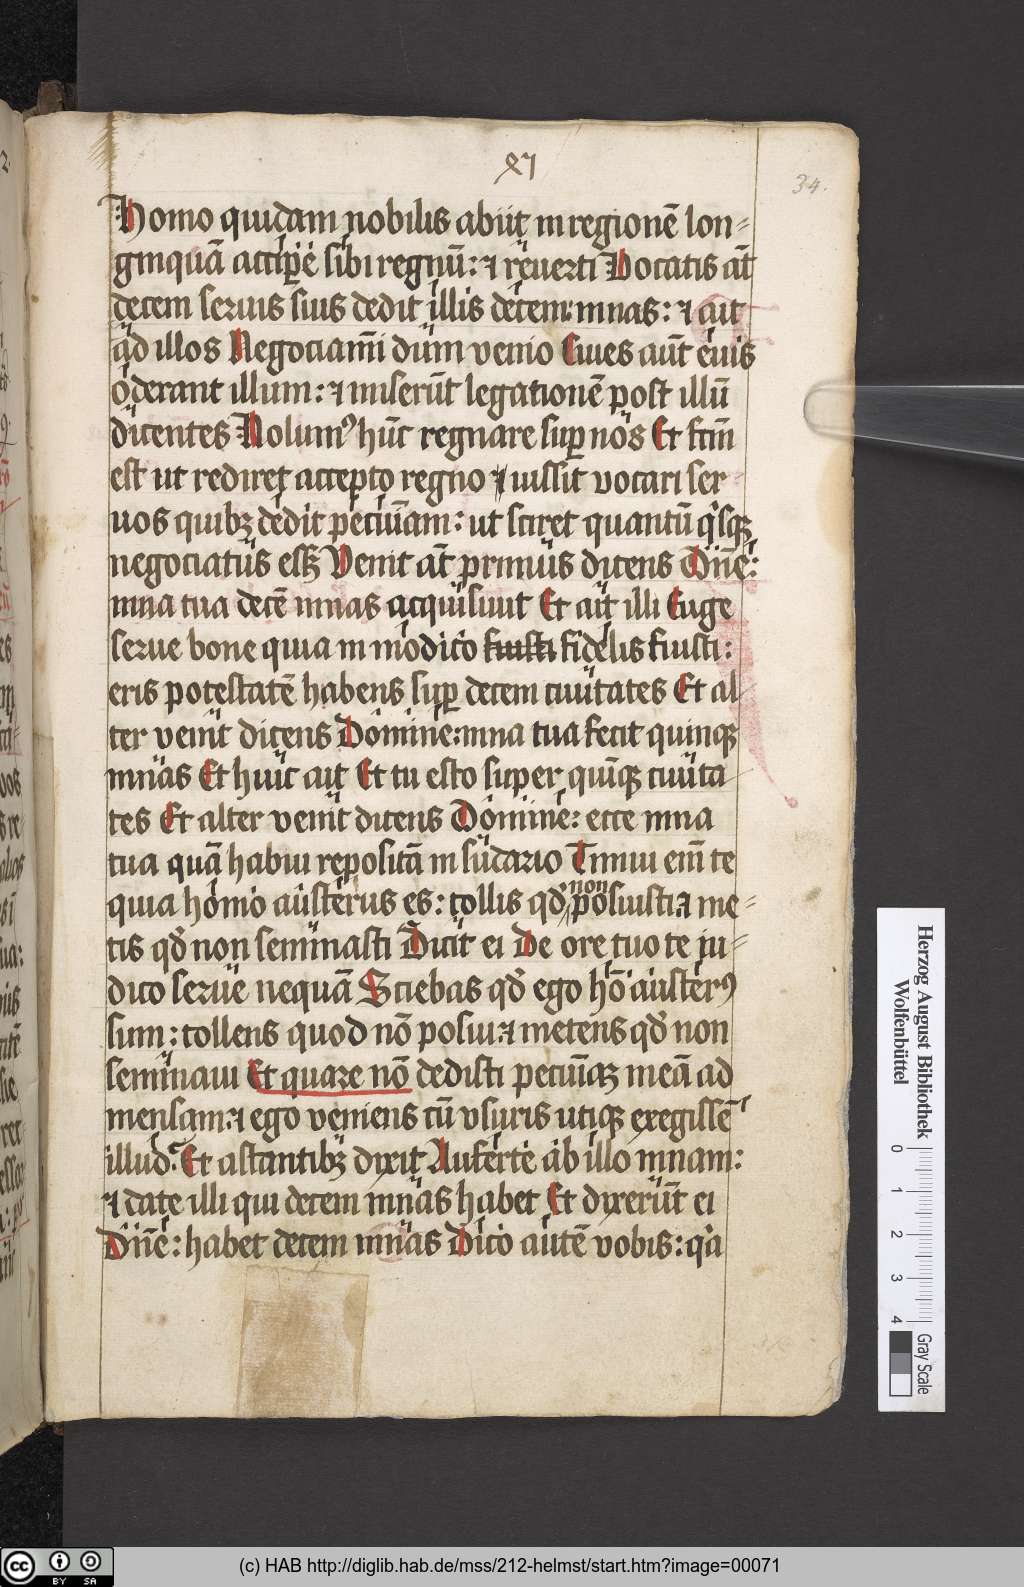 xv
34.
Homo quidam nobilis abiit in regionē lon⸗
ginquā accip̄e sibi regnū: ⁊ reuerti Vocatis at̄
decem seruis suis dedit illis decem mnas: ⁊ ait
ad illos Negociamī dum venio Ciues aūt eius
oderant illum: ⁊ miserūt legationē post illū
dicentes Nolumꝰ hūc regnare suꝑ nos Et fctm̄
est ut rediret accepto regno ⁊ iussit vocari ser
uos quibꝫ dedit pecūiam: ut sciret quantū qͥsqꝫ
negociatus esꝫ Venit at̄ primus dicens Dn̄e:
mna tua decē mnas acquisiuit Et ait illi Euge
serue bone quia in modico fuisti fidelis fuisti:
eris potestatē habens suꝑ decem ciuitates Et al
ter venit dicens Domine: mna tua fecit quinqꝫ
mnas Et huic ait Et tu esto super quīqꝫ ciuita
tes Et alter venit dicens Domine: ecce mna
tua quā habui repositā in sudario Timui em̄ te
non
quia homo austerus es: tollis qd̄ posuisti ⁊ me⸗
tis qd̄ non seminasti Dicit ei De ore tuo te iu⸗
dico serue nequā Sciebas qd̄ ego hō austerꝰ
sum: tollens quod nō posui: ⁊ metens qd̄ non
seminaui Et quare nō dedisti pecūiaꝫ meā ad
mensam: ⁊ ego veniens cū vsuris utiqꝫ exegissē
illud. Et astantibꝫ dixit Auferte ab illo mnam:
⁊ date illi qui decem mnas habet Et dixerūt ei
Dn̄e: habet decem mnas Dico autē vobis: qͥa
Herzog August Bibliothek
Wolfenbüttel
0 1 2 3 4
Gray Scale
cc BY SA
(c) HAB http://diglib.hab.de/mss/212-helmst/start.htm?image=00071